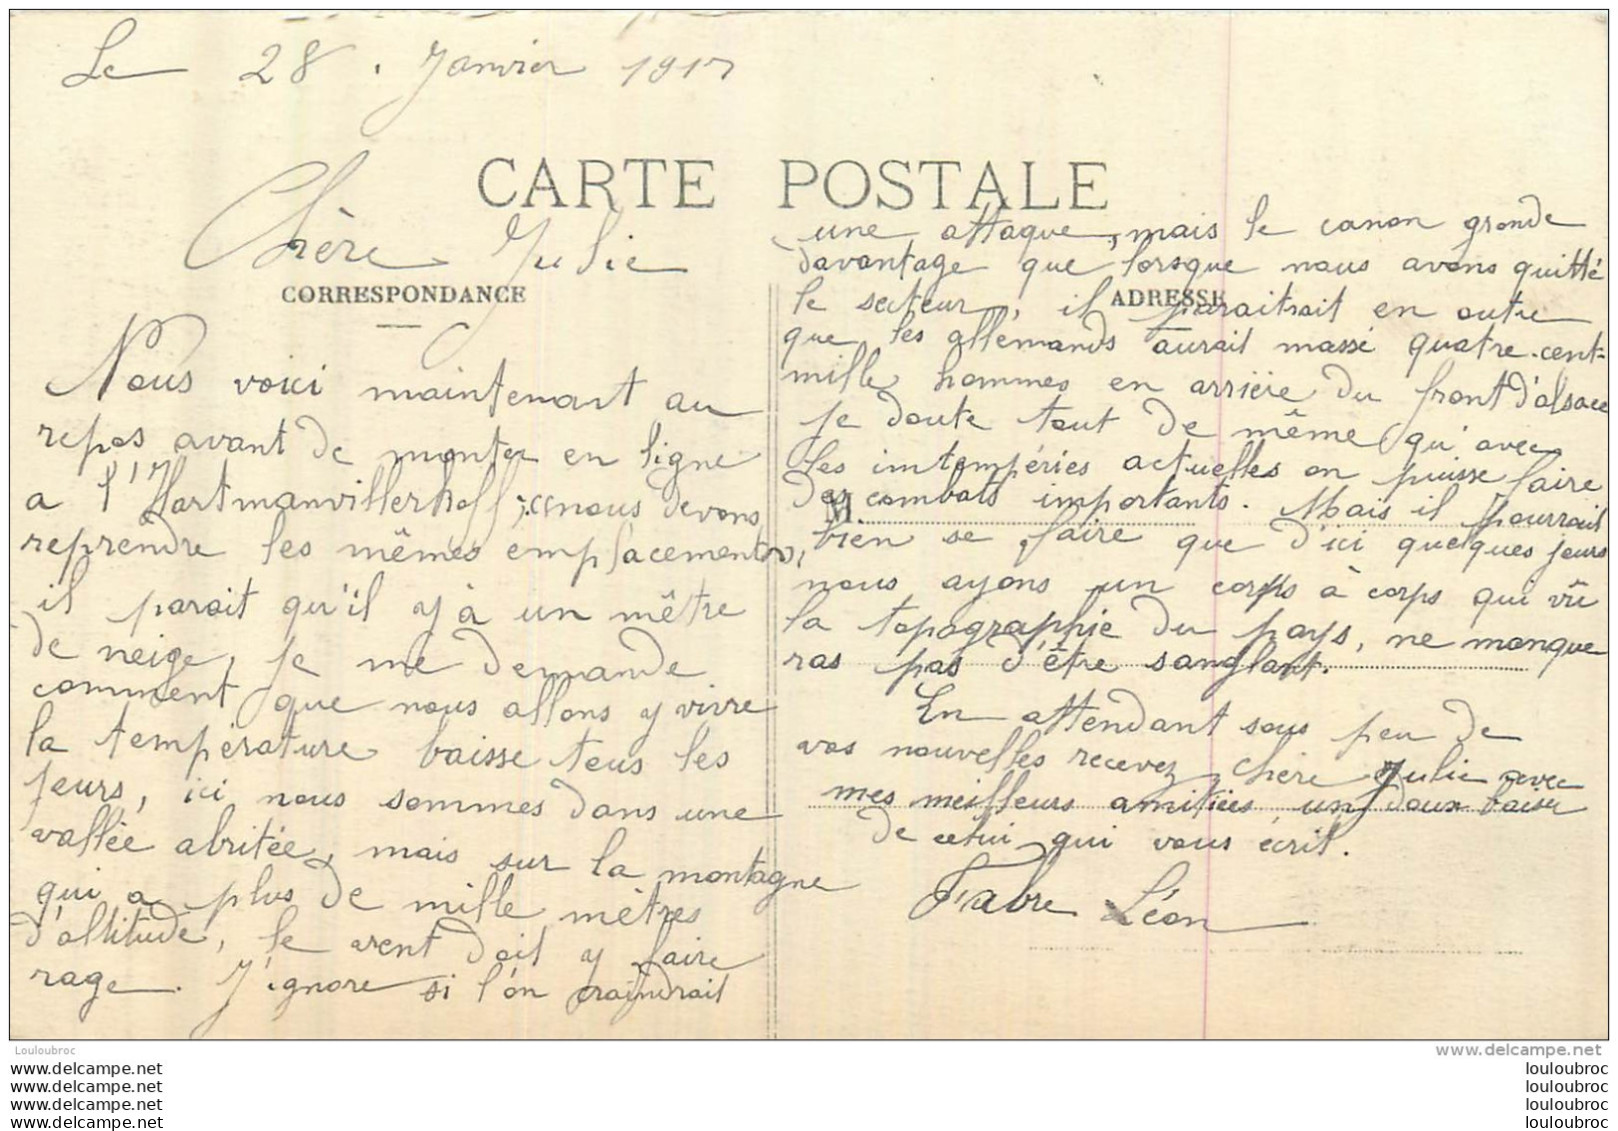 Le 28. Janvier 1917
CARTE POSTALE
Chère Julie
CORRESPONDANCE
Nous voici maintenant au
repos avant de monter en ligne
a l'Hartmanvillerhoff, nous devons
reprendre les mêmes emplacements,
il parait qu'il y à un mêtre
de neige, je me demande
comment que nous allons y vivre
la température baisse tous les
jours, ici nous sommes dans une
vallée abritée, mais sur la montagne
qui a plus de mille mètres
d'altitude, le vent doit y faire
rage. J'ignore si l'on craindrait
une attaque, mais le canon gronde
davantage que lorsque nous avons quitté
le secteur, il paraitrait en outre
ADRESSE
que les allemands aurait massé quatre-cent-
mille hommes en arrière du front d'alsace
je doute tout de même qu'avec
les imtempéries actuelles on puisse faire
des combats importants. Mais il pourrait
M.
bien se faire que d'ici quelques jours
nous ayons un corps à corps qui vû
la topographie du pays, ne manque
ras pas d'être sanglant.
En attendant sous peu de
vos nouvelles recevez chère Julie avec
mes meilleurs amitiées un doux baiser
de celui qui vous écrit.
Fabre Léon
Louloubroc
www.delcampe.net
www.delcampe.net
www.delcampe.net
www.delcampe.net
www.delcampe.net
louloubroc
louloubroc
louloubroc
louloubroc